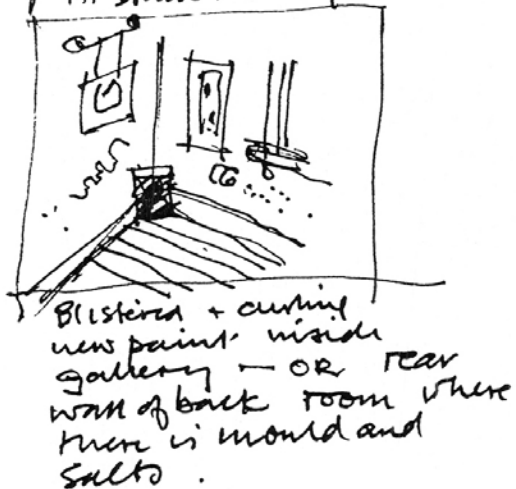 Blistered + curling
new paint inside
gallery — OR rear
wall of back room where
there is mould and
salts.